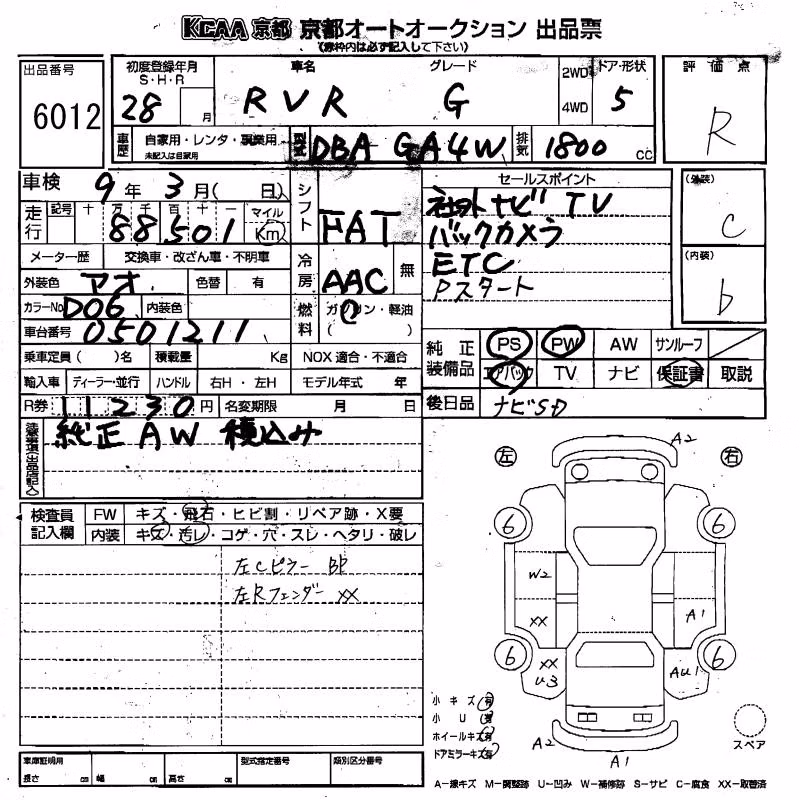 KCAA京都 京都オートオークション 出品票
(赤枠内は必ず記入して下さい)
出品番号 6012
初度登録年月 S・H・R 28 月
車名 RVR
グレード G
2WD 4WD
ドア・形状 5
評価点 R
車歴 自家用・レンタ・事業用 未記入は自家用
型式 DBA GA4W
排気 1800 cc
車検 9年 3月( 日)
シフト FAT
セールスポイント
社外ナビ TV
バックカメラ
ETC
Pスタート
(外装) C
(内装) b
走行 記号 十 万 千 百 十 一 マイル Km
88501
メーター歴 交換車・改ざん車・不明車
冷房 AAC 無
外装色 アオ 色替 有
カラーNo D06 内装色
燃料 ガソリン・軽油 ( )
車台番号 0501211
乗車定員( )名 積載量 Kg NOX 適合・不適合
純正装備品 PS PW AW サンルーフ
エアバック TV ナビ 保証書 取説
輸入車 ディーラー・並行 ハンドル 右H・左H モデル年式 年
R券 11230円 名変期限 月 日
後日品 ナビSD
純正AW 積込み
検査員記入欄 FW キズ・飛石・ヒビ割・リペア跡・X要
内装 キズ・汚レ・コゲ・穴・スレ・ヘタリ・破レ
左Cピラー BP
左Rフェンダー XX
左 右
A2
6 6
W2
XX A1
6 XX U3 AU1 6
A2 A1
小キズ 有
小U 有
ホイールキズ 有
ドアミラーキズ 有
スペア
車庫証明用 長さ cm 幅 cm 高さ cm 型式指定番号 類別区分番号
A-線キズ M-調整跡 U-凹み W-補修跡 S-サビ C-腐食 XX-取替済